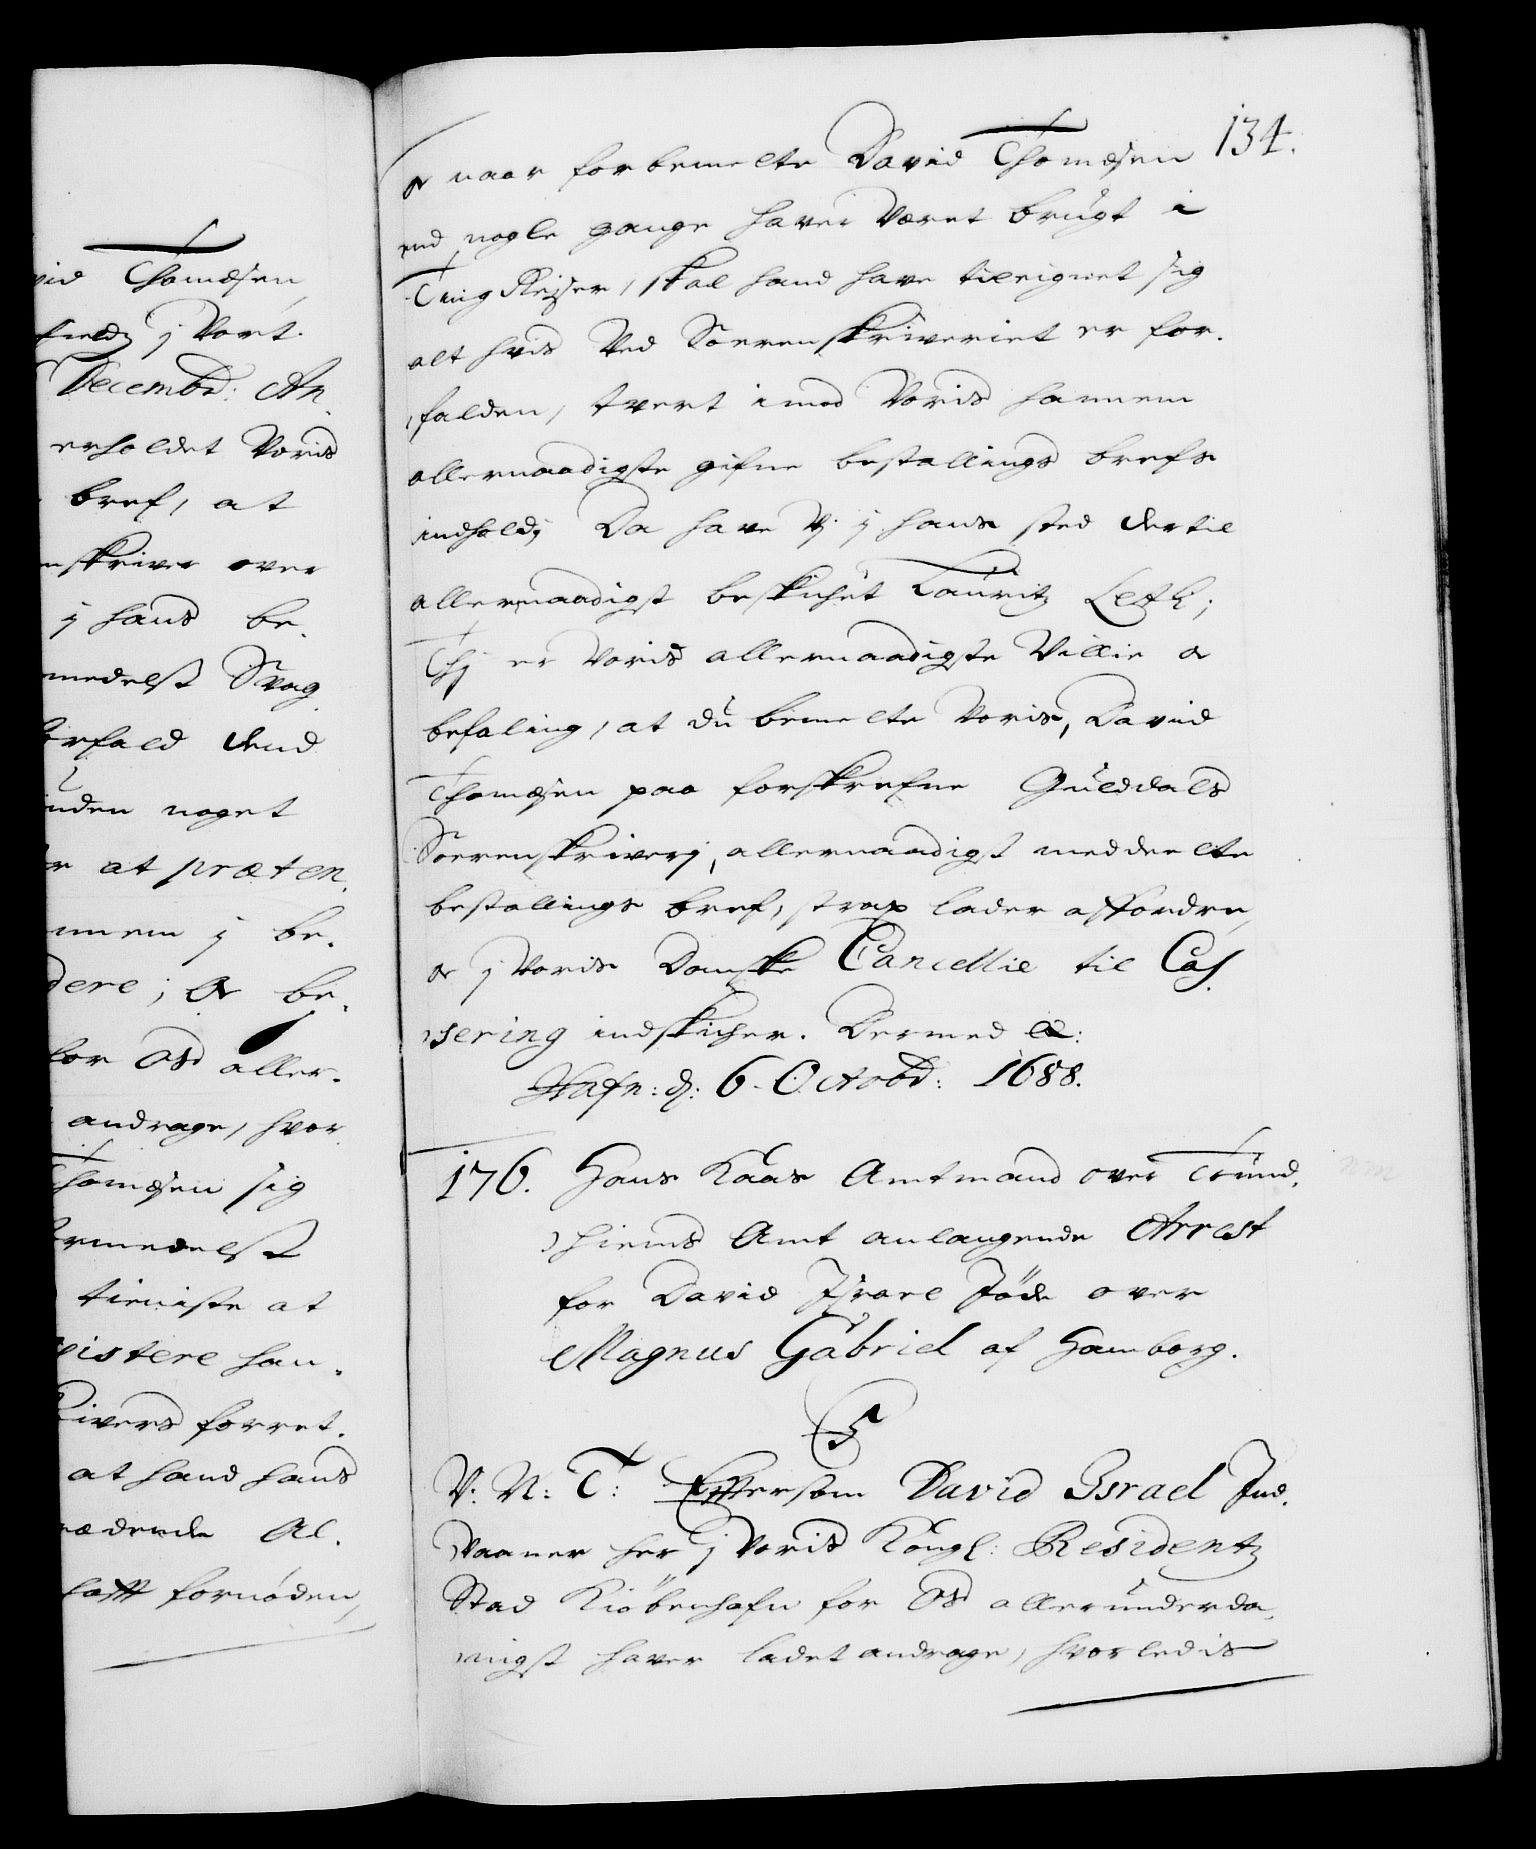 134.
vid Thomæsen,
fields j Vort
Decembr: An
erholdet Voris
bref, at
nskriver over
j hans be-
medelst Svag
forfald dend
uden noget
at præten-
nnem j be-
dere; oc be-
for Os aller-
andrage, hvor
Thomæsen sig
formedelst
tieniste at
xistere han-
skrivers forret-
at hand hans
rædende Al-
hafft fornøden,
oc naar forbemelte David Thomæsen
end nogle gange haver Været brugt i
Ting Reyser, skal hand have tileignet sig
alt hvis Ved Sorenskriveriet er for-
falden, tvert imod Voris hannem
allernaadigste gifne bestallings brefs
indhold; Da have Vj j hans sted dertil
allernaadigst beskichet Lauritz Leth;
Thj er Voris allernaadigste Villie oc
befaling, at du bemelte Voris, David
Thomæsen paa forskrefne Guldals
Sorenskriverj, allernaadigst meddeelte
bestallings bref, strax lader affordre,
oc j Voris Danske Cancellie til Cas-
sering indskicher. Dermed etc:
Hafn: d: 6. Octobr: 1688.
176. Hans Kaas Amtmand over Trund-
hiems Amt anlangende Arrest
for David Israel Jøde over
Magnus Gabriel af Hamborg.
C5
V: N: T: Eftersom David Israel Jud-
Vaaner her j Voris Kongl: Residentz
Stad Kiøbenhafn for Os allerunderda-
nigst haver ladet andrage, hvorledis